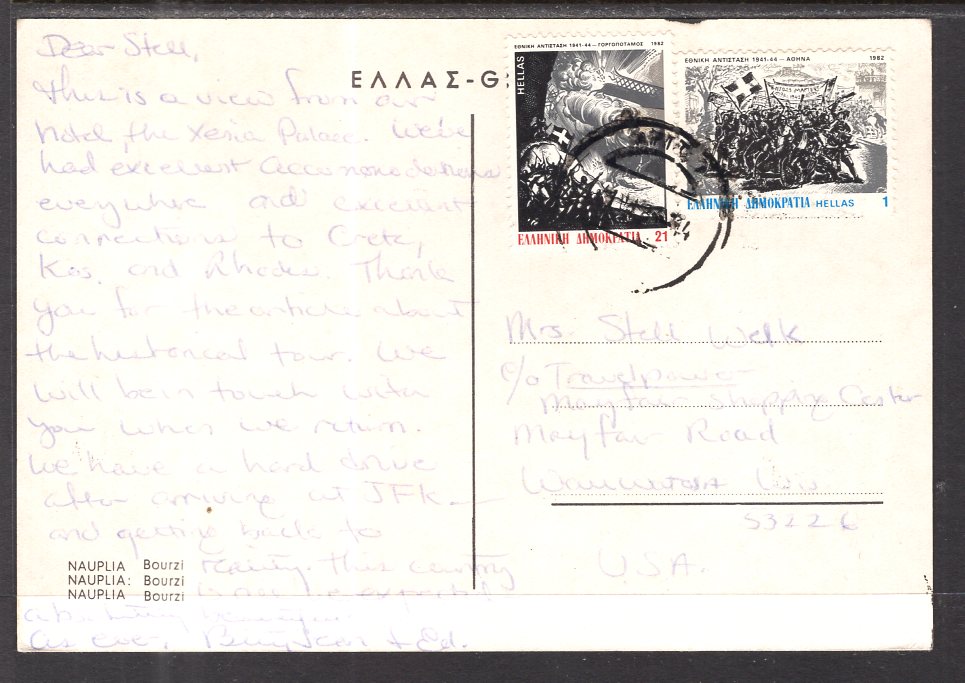 Dear Stell,
this is a view from our
hotel, the Xenia Palace. We've
had excellent accommodations
everywhere and excellent
connections to Crete,
Kos, and Rhodes. Thank
you for the article about
the historical tour. We
will be in touch with
you when we return.
We have a hard drive
after arriving at JFK
and getting back to
reality. This country
As ever,
+ Ed.
NAUPLIA Bourzi
NAUPLIA: Bourzi
NAUPLIA Bourzi
ΕΛΛΑΣ-G
ΕΘΝΙΚΗ ΑΝΤΙΣΤΑΣΗ 1941-44 – ΓΟΡΓΟΠΟΤΑΜΟΣ 1982
HELLAS
ΕΛΛΗΝΙΚΗ ΔΗΜΟΚΡΑΤΙΑ 21
ΕΘΝΙΚΗ ΑΝΤΙΣΤΑΣΗ 1941-44 – ΑΘΗΝΑ 1982
ΕΛΛΗΝΙΚΗ ΔΗΜΟΚΡΑΤΙΑ HELLAS 1
Mrs. Stell Welk
c/o Travelpower
Mayfair Shopping Center
Mayfair Road
Wauwatosa Wis
53226
U.S.A.